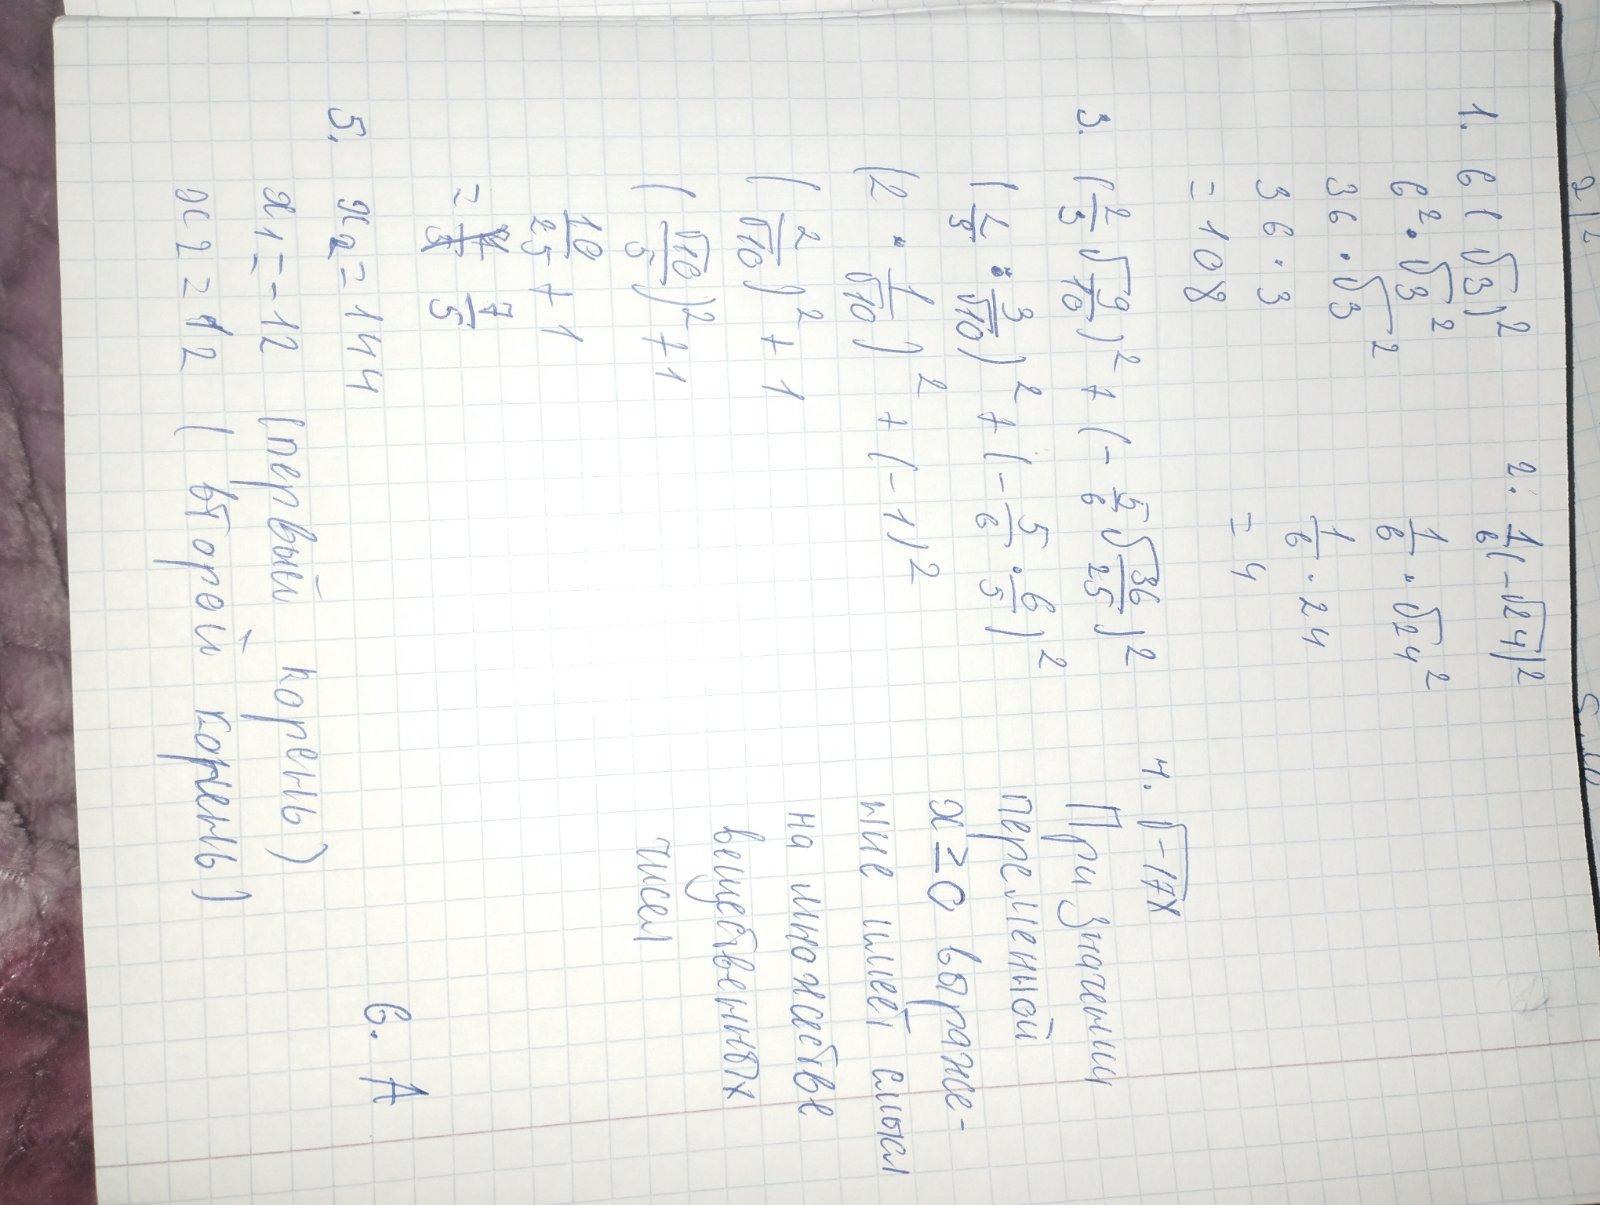 1. 6(√3)²
6²·√3²
36·√3²
36·3
= 108
2. 1/6(-√24)²
1/6·√24²
1/6·24
= 4
3. (2/3√9/10)² + (-5/6√36/25)²
·3/√10)² + (-5/6·6/5)²
(2·1/√10)² + (-1)²
(2/√10)² + 1
(√10/5)² + 1
10/25 + 1
= 7/5
4. √-17x
При значении
переменной
x≥0 выраже-
ние имеет смысл
на множестве
вещественных
чисел
5. x2=144
x1=-12 (первый корень)
x2=12 (второй корень)
6. А